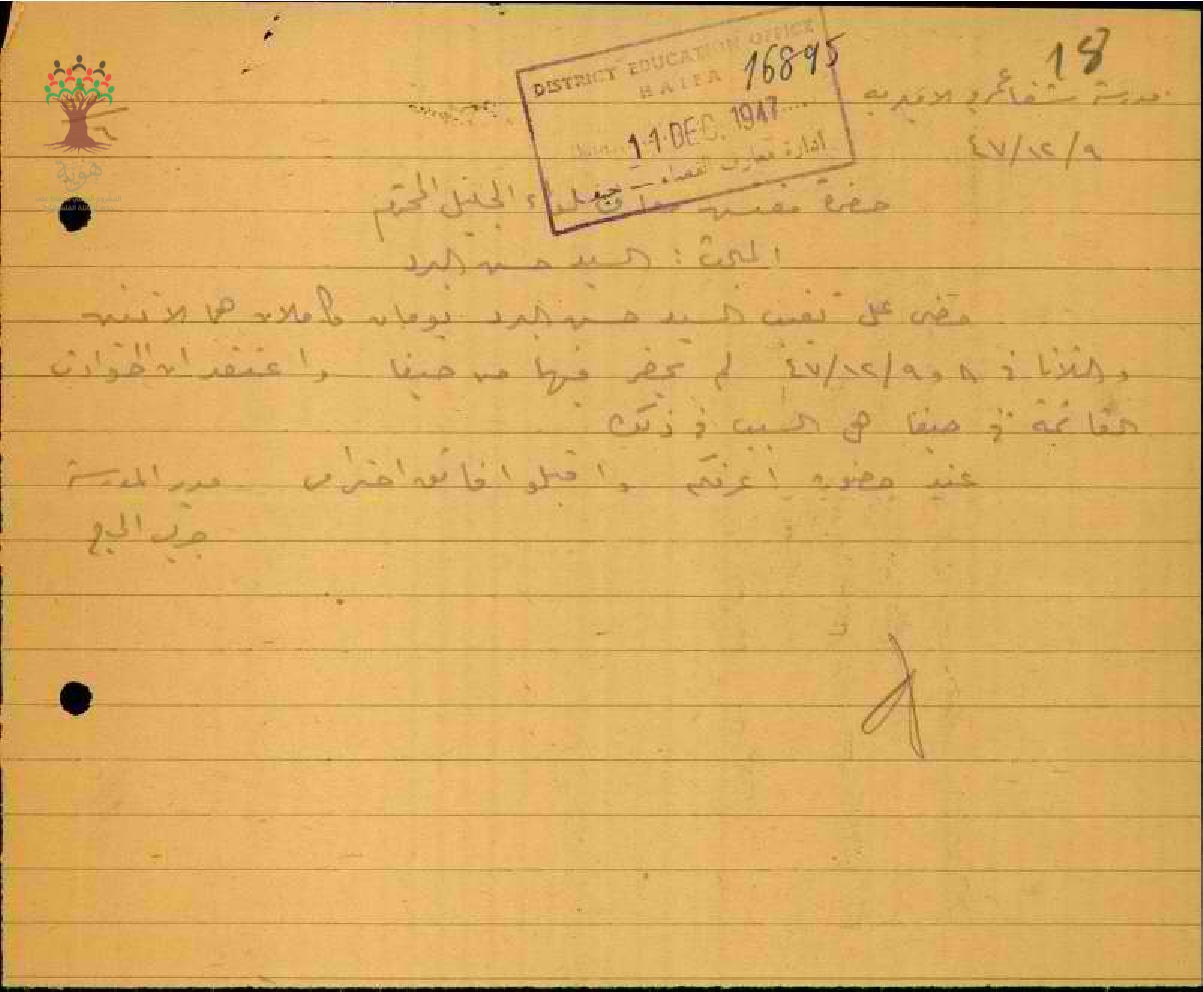 18
مدرسة شفاعمرو الاميرية
٤٧/١٢/٩
DISTRICT EDUCATION OFFICE
HAIFA
16895
11 DEC. 1947
ادارة معارف القضاء – حيفا
هوية
حضرة مفتش معارف لواء الجليل المحترم
المبحث : السيد حسن البرد
مضى على تغيب السيد حسن البرد يومان كاملان هما الاثنين
والثلاثا في ٨ و ٤٧/١٢/٩ لم يحضر فيها من حيفا واعتقد ان الحوادث
القائمة في حيفا هي السبب في ذلك
عند حضوره اعرفكم واقبلوا فائق احترامي مدير المدرسة